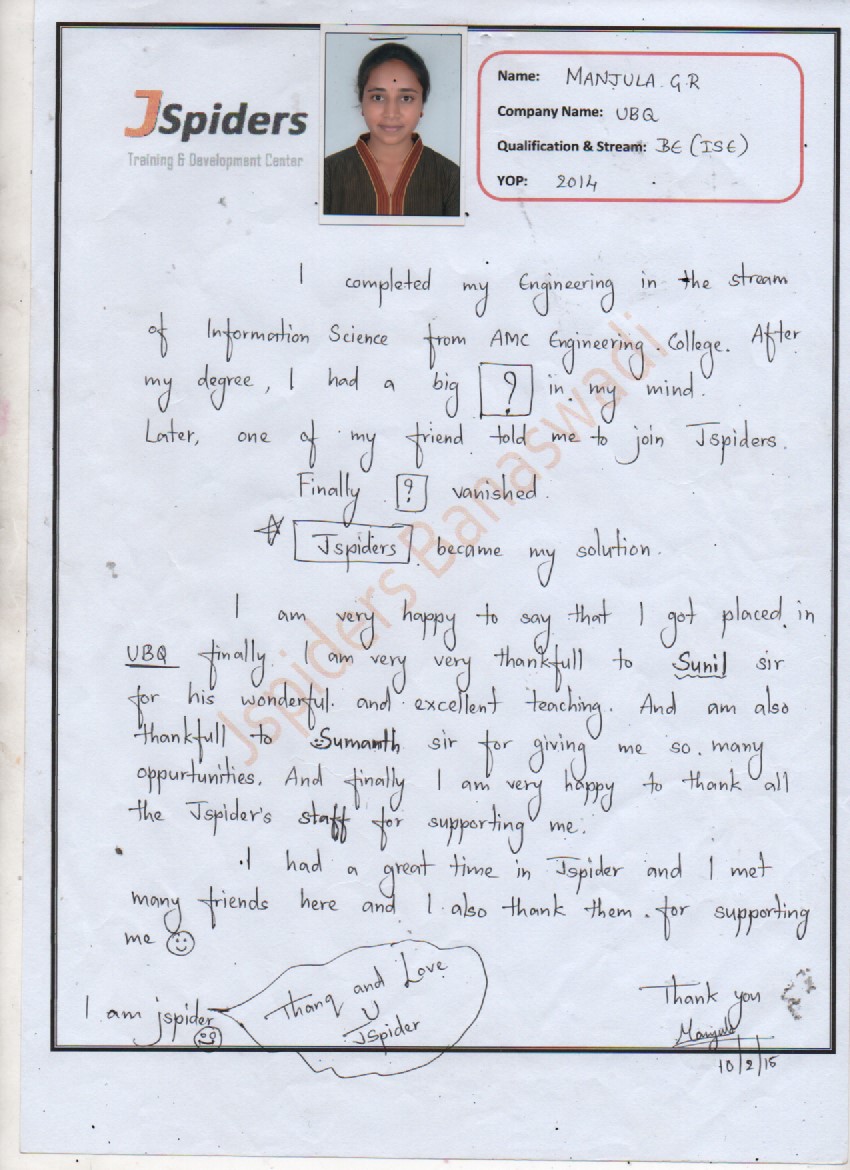 JSpiders
Training & Development Center
Name: MANJULA. G.R
Company Name: UBQ
Qualification & Stream: BE (ISE)
YOP: 2014
I completed my Engineering in the stream
of Information Science from AMC Engineering College. After
my degree, I had a big ? in my mind.
Later, one of my friend told me to join Jspiders.
Finally ? vanished.
Jspiders became my solution.
I am very happy to say that I got placed in
UBQ finally. I am very very thankfull to Sunil sir
for his wonderful and excellent teaching. And am also
thankfull to Sumanth sir for giving me so many
oppurtunities. And finally I am very happy to thank all
the Jspider's staff for supporting me.
I had a great time in Jspider and I met
many friends here and I also thank them for supporting
me
I am jspider
Thanq and Love
U
JSpider
Thank you
Manjula
10/2/15
Jspiders Banaswadi